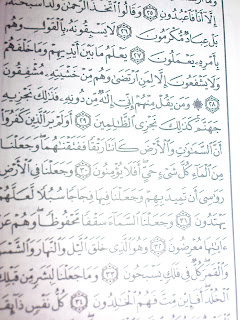 إِلَّآ أَنَا۠ فَٱعْبُدُونِ ٢٥ وَقَالُوا۟ ٱتَّخَذَ ٱلرَّحْمَٰنُ وَلَدًا ۗ سُبْحَٰنَهُۥ
بَلْ عِبَادٌ مُّكْرَمُونَ ٢٦ لَا يَسْبِقُونَهُۥ بِٱلْقَوْلِ وَهُم
بِأَمْرِهِۦ يَعْمَلُونَ ٢٧ يَعْلَمُ مَا بَيْنَ أَيْدِيهِمْ وَمَا خَلْفَهُمْ
وَلَا يَشْفَعُونَ إِلَّا لِمَنِ ٱرْتَضَىٰ وَهُم مِّنْ خَشْيَتِهِۦ مُشْفِقُونَ
٢٨ وَمَن يَقُلْ مِنْهُمْ إِنِّىٓ إِلَٰهٌ مِّن دُونِهِۦ فَذَٰلِكَ نَجْزِيهِ
جَهَنَّمَ ۚ كَذَٰلِكَ نَجْزِى ٱلظَّٰلِمِينَ ٢٩ أَوَلَمْ يَرَ ٱلَّذِينَ كَفَرُوٓا۟
أَنَّ ٱلسَّمَٰوَٰتِ وَٱلْأَرْضَ كَانَتَا رَتْقًا فَفَتَقْنَٰهُمَا ۖ وَجَعَلْنَا
مِنَ ٱلْمَآءِ كُلَّ شَىْءٍ حَىٍّ ۖ أَفَلَا يُؤْمِنُونَ ٣٠ وَجَعَلْنَا فِى ٱلْأَرْضِ
رَوَٰسِىَ أَن تَمِيدَ بِهِمْ وَجَعَلْنَا فِيهَا فِجَاجًا سُبُلًا لَّعَلَّهُمْ
يَهْتَدُونَ ٣١ وَجَعَلْنَا ٱلسَّمَآءَ سَقْفًا مَّحْفُوظًا ۖ وَهُمْ عَنْ
ءَايَٰتِهَا مُعْرِضُونَ ٣٢ وَهُوَ ٱلَّذِى خَلَقَ ٱلَّيْلَ وَٱلنَّهَارَ وَٱلشَّمْسَ
وَٱلْقَمَرَ ۖ كُلٌّ فِى فَلَكٍ يَسْبَحُونَ ٣٣ وَمَا جَعَلْنَا لِبَشَرٍ مِّن قَبْلِكَ
ٱلْخُلْدَ ۖ أَفَإِي۟ن مِّتَّ فَهُمُ ٱلْخَٰلِدُونَ ٣٤ كُلُّ نَفْسٍ ذَآئِقَةُ